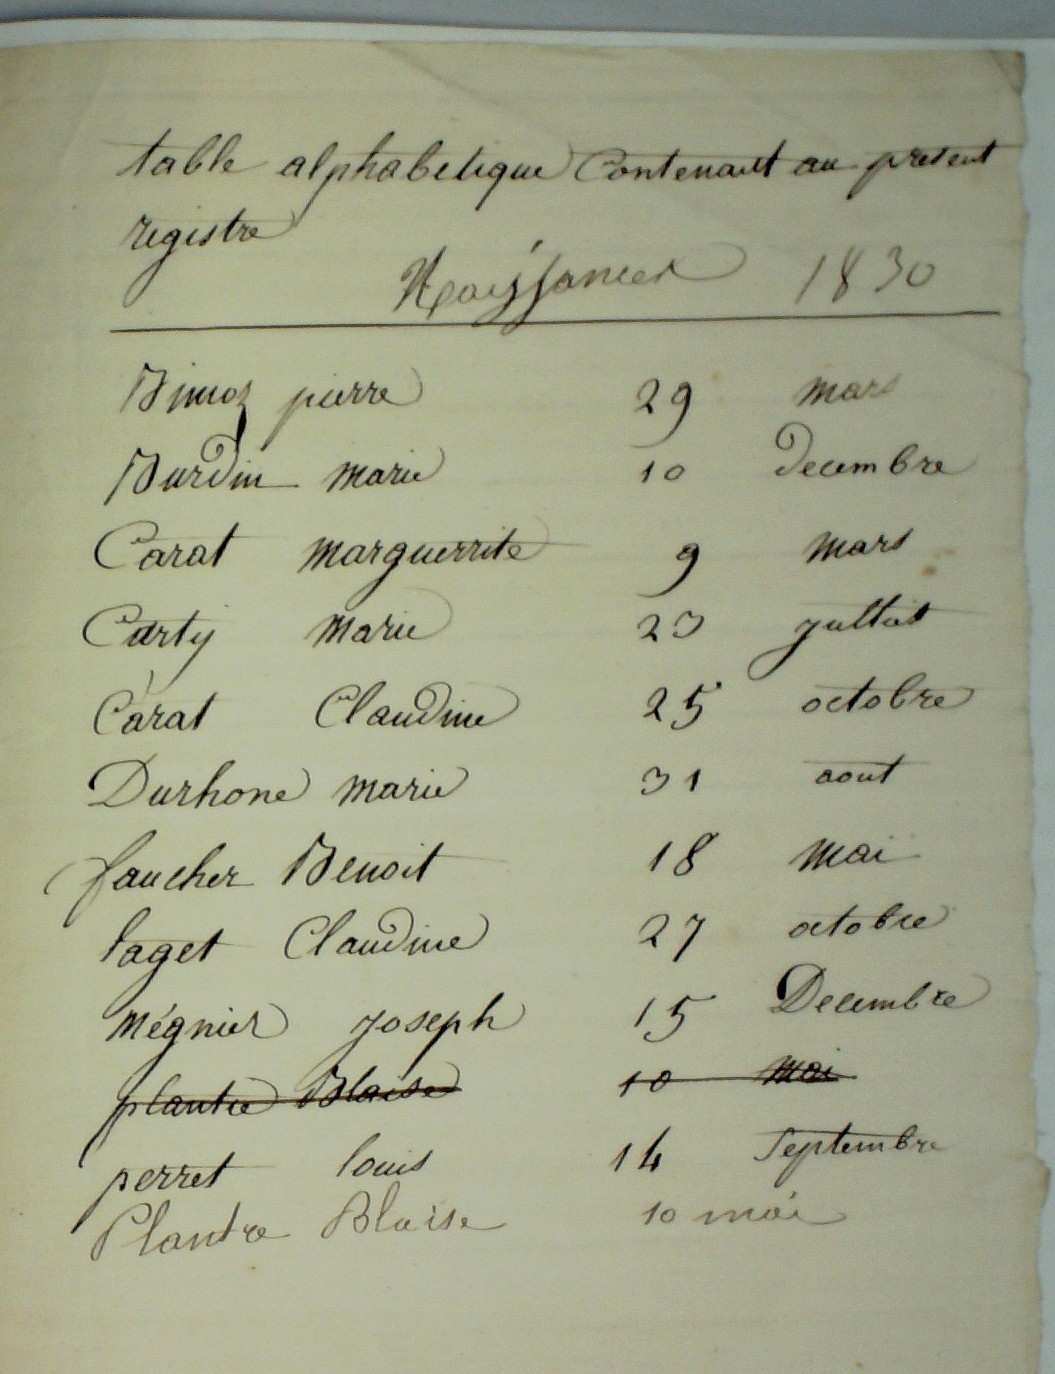 table alphabetique Contenant au present
registre
Naissances 1830
Bimoz pierre 29 mars
Burdin marie 10 Decembre
Carat marguerrite 9 mars
Carty marie 23 juillet
Carat Claudine 25 octobre
Durhone marie 31 aout
faucher Benoit 18 mai
laget Claudine 27 octobre
mégnier joseph 15 Decembre
plantre Blaise 10 mai
perret louis 14 Septembre
Plantre Blaise 10 mai